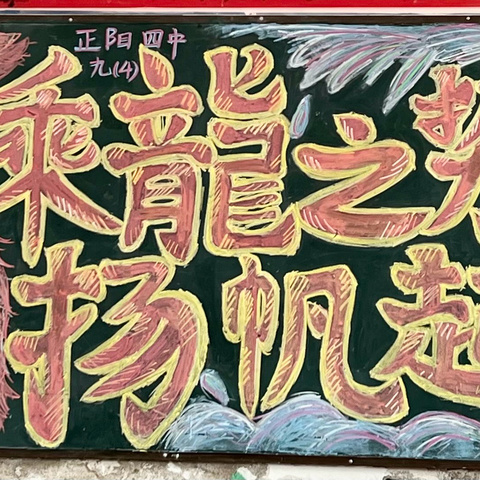 正阳四中
九(4)
乘龍之势
扬帆起